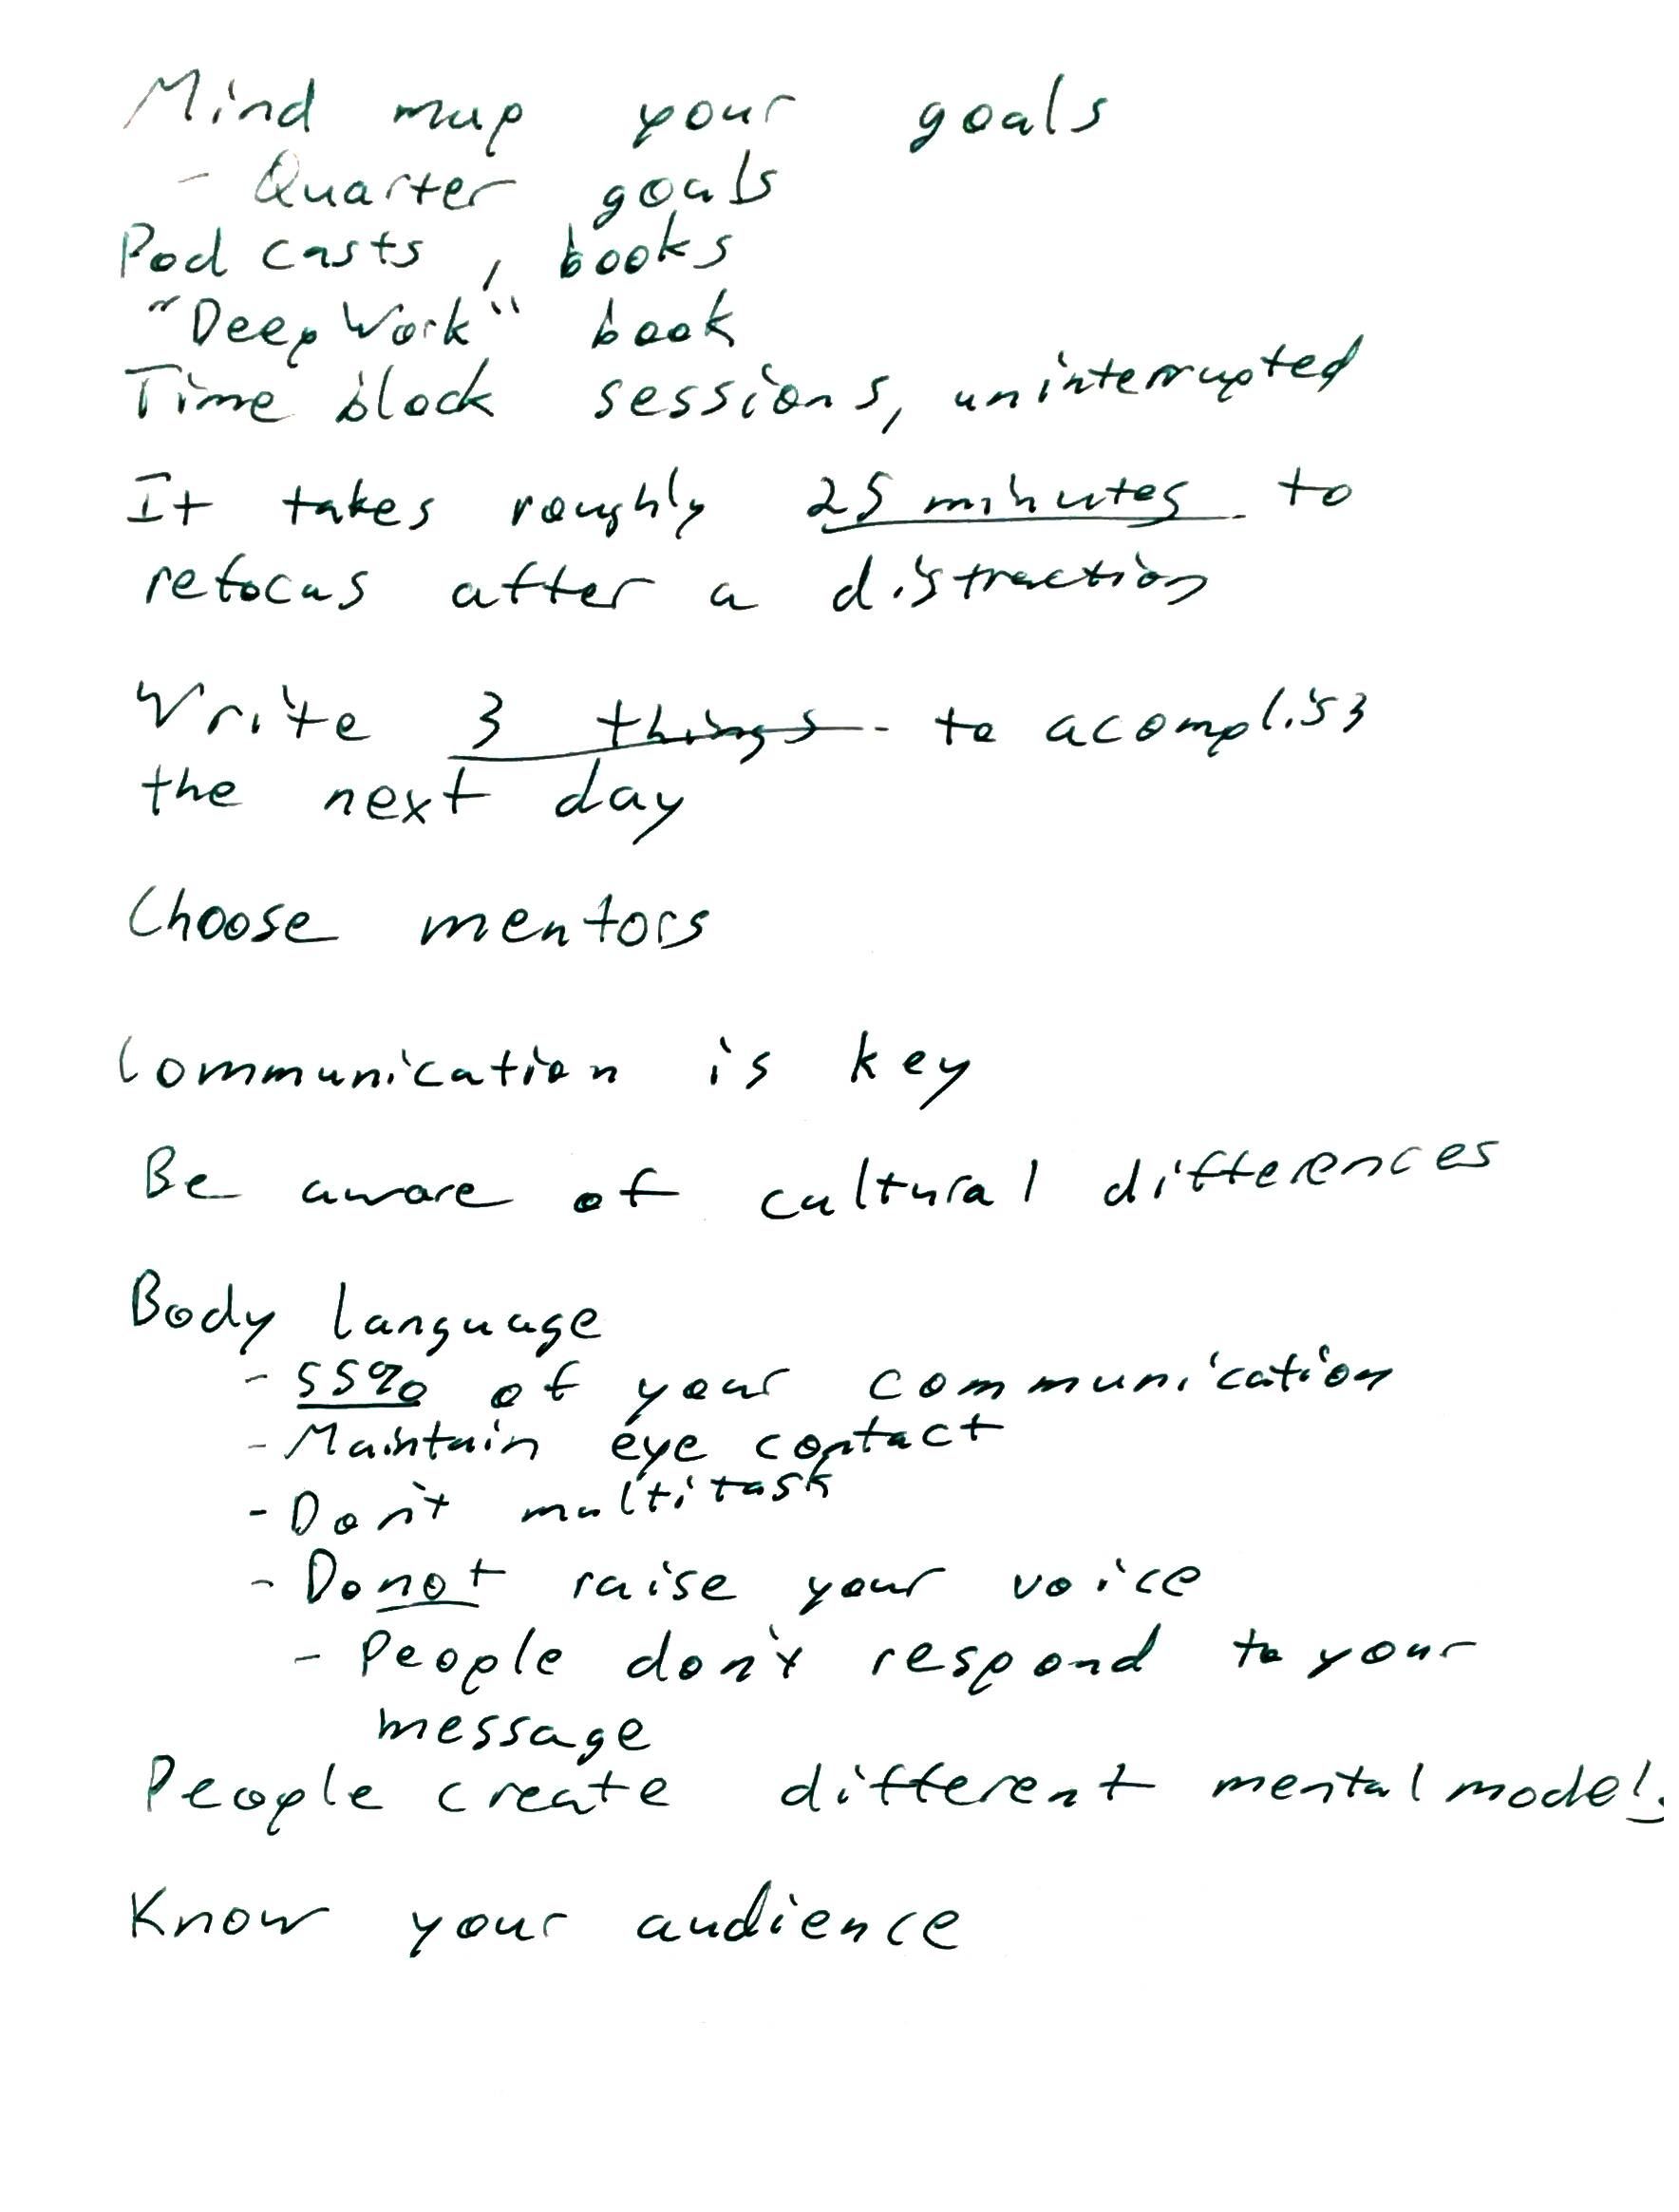 Mind map your goals
- Quarter goals
Podcasts, books
"Deep Work" book
Time block sessions, uninterrupted
It takes roughly 25 minutes to
refocus after a distraction
Write 3 things to acomplish
the next day
Choose mentors
Communication is key
Be aware of cultural differences
Body language
- 55% of your communication
- Maintain eye contact
- Don't multitask
- Do not raise your voice
- People don't respond to your
message
People create different mental models
Know your audience